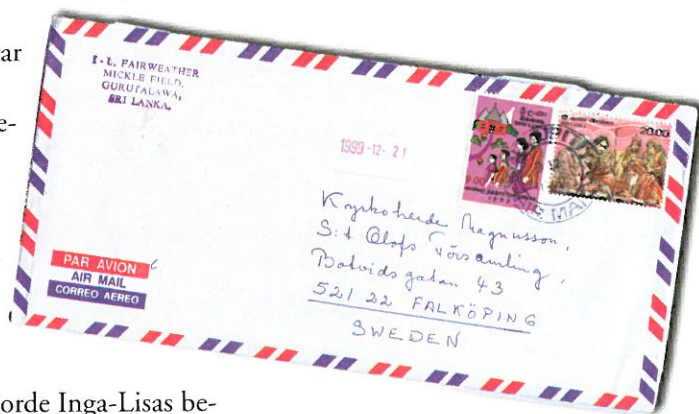 var
I - L. FAIRWEATHER
MICKLE FIELD,
GURUTALAWA,
SRI LANKA.
e-
1999-12- 21
9.00
20.00
AIR MAI
Kyrkoherde Magnusson,
S:t Olofs Församling,
Botvidsgatan 43
521 22 FALKÖPING
SWEDEN
PAR AVION
AIR MAIL
CORREO AEREO
orde Inga-Lisas be-